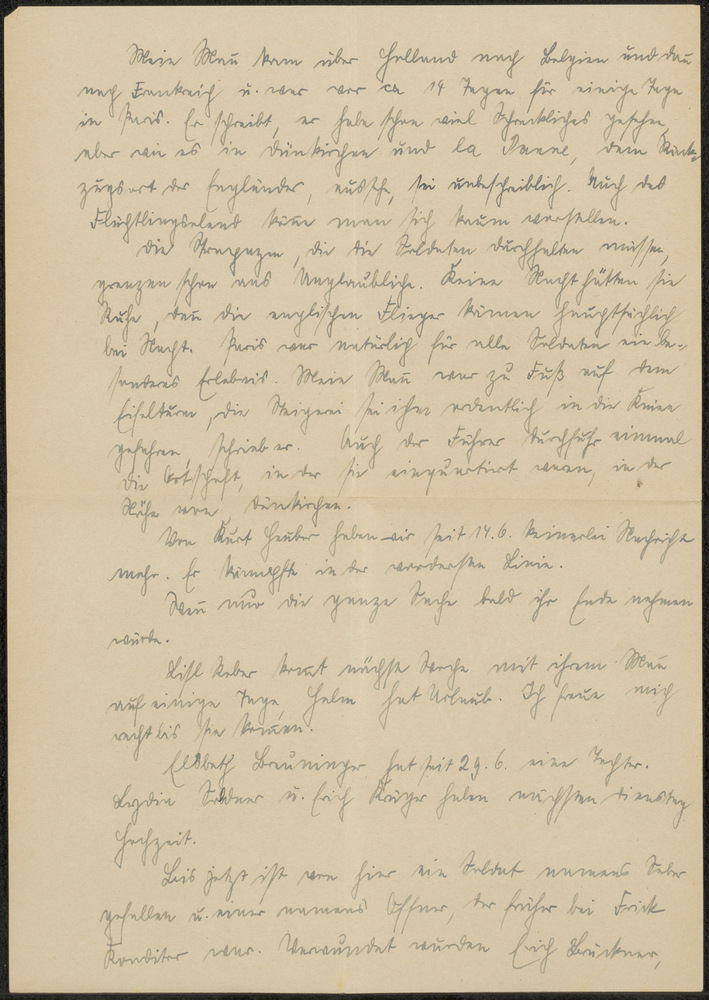 Mein Mañ kam über Holland nach Belgien und dañ
nach Frankreich u. war vor ca 14 Tagen für einige Tage
in Paris. Er schreibt, er habe schon viel Schreckliches gesehen,
aber wie es in Dünkirchen und la Panne, dem Rück-
zugsort der Engländer, aussehe, sei unbeschreiblich. Auch das
Flüchtlingselend köñe man sich kaum vorstellen.
Die Strapazen, die die Soldaten durchhalten müssen,
grenzen schon ans Unglaubliche. Keine Nacht hätten sie
Ruhe, deñ die englischen Flieger kämen hauptsächlich
bei Nacht. Paris war natürlich für alle Soldaten ein be-
sonderes Erlebnis. Mein Mañ war zu Fuß auf dem
Eifelturm, die Steigerei sei ihm ordentlich in die Kniee
gefahren, schrieb er. Auch der Führer durchfuhr einmal
die Ortschaft, in der sie einquartiert waren, in der
Nähe von Dünkirchen.
Von Kurt Heuber haben wir seit 14.6. keinerlei Nachricht
mehr. Er kämpfte in der vordersten Linie.
Weñ nur die ganze Sache bald ihr Ende nehmen
würde.
Lisl Reber komt nächste Woche mit ihrem Mañ
auf einige Tage, Helm hat Urlaub. Ich freue mich
recht bis sie komen.
Elsbeth Breuninger hat seit 29. 6. eine Tochter.
Lydia Soldner u. Erich Krüger haben nächsten Dienstag
Hochzeit.
Bis jetzt ist von hier ein Soldat namens Seber
gefallen u. einer namens Offner, der früher bei Frick
Konditor war. Verwundet wurden Erich Brückner,